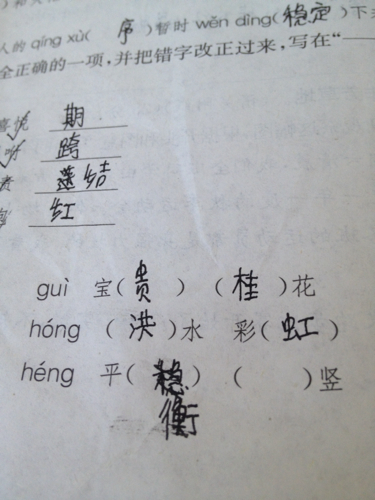 人的 qíng xù( 序 )暂时 wěn dìng(稳定)下
全正确的一项,并把错字改正过来,写在"
期
跨
结
红
guì 宝(贵) (桂)花
hóng (洪)水 彩(虹)
héng 平( ) ( )竖
衡